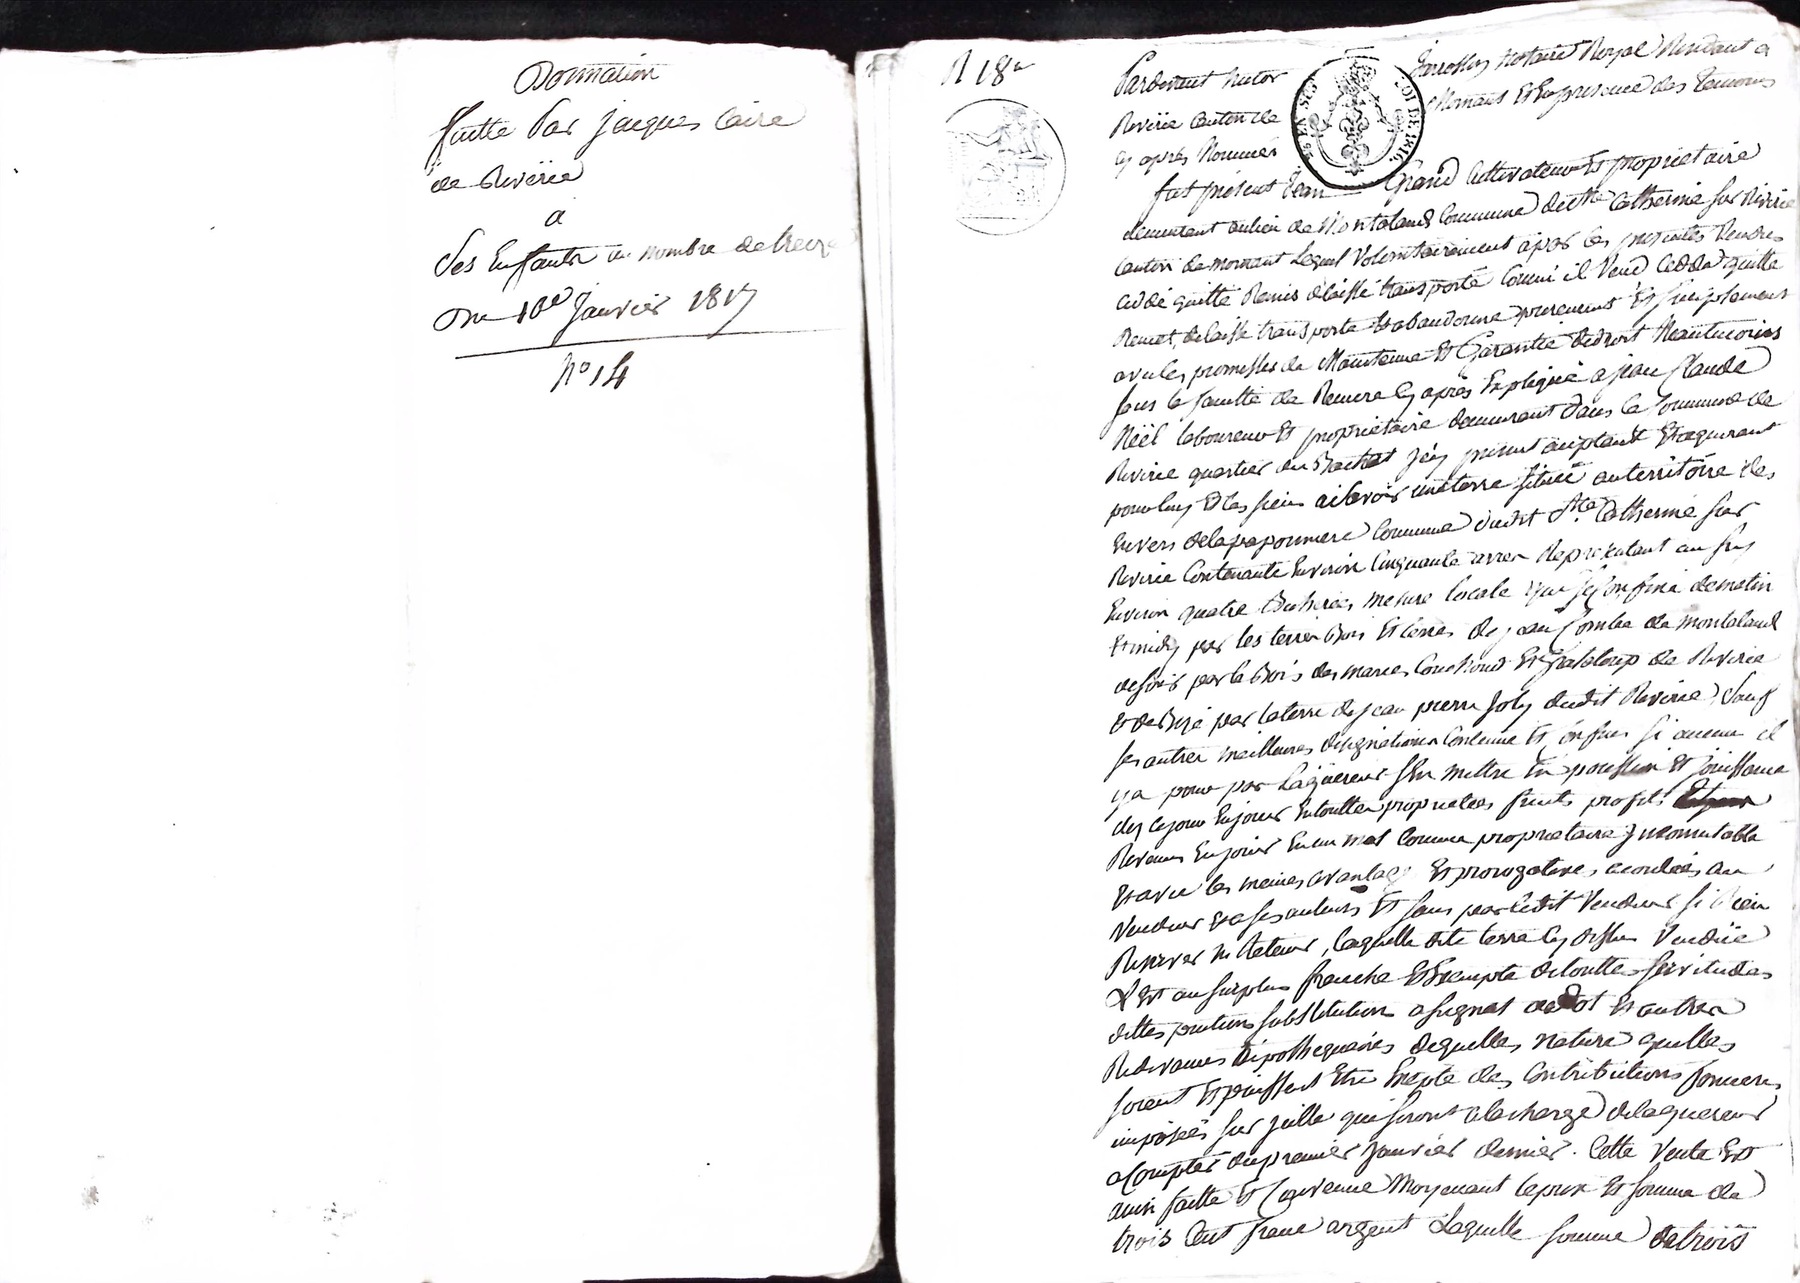 Donnation
faitte Par Jacques Caire
de Riverie
a
Ses Enfants au nombre de treize
Du 10e Janvier 1817
No 14
N 18
Pardevant Victor Jarrosson Notaire Royal Residant a
Riverie canton de Mornant Et En presence des Temoins
cy après Nommés
fut présent Jean Grand Cultivateur Et proprietaire
demeurant au lieu de Montaland Commune de Ste Catherine sur Riverie
canton de mornant Lequel Volontairement apar les presentes Vendus
cedé quitte Remis délaissé transporté Comme il Vend Cedde quitte
Remet, delaisse transporte Et abandonne purement Et simplement
avec les promesses de Maintenue Et Garentie de droit Neantmoins
sous la faculté de Remere cy après Expliquée a jean Claude
Néel laboureur Et proprietaire demeurant dans la Commune de
Riverie quartier du Bachat jcy present aceptant Et aquerant
pour luy Et les siens aisavoir une terre située au territoire des
Envers de la paponniere Commune dudit Ste Catherine sur
Riverie Contenante Environ Cinquante arres Representant au sus
Environ quatre Bicherées mesure locale qui se Confine de matin
Et midy par les terres Bois Et terres de jean Combe de montaland
de soir par le Bois des maries Couchoud Et Gasloup de Riverie
Et de Bize par la terre de jean pierre joly dudit Riverie, Sauf
ses autres meilleures designations Contenue Et Confins si aucuns il
y a pour par Laquereur s'En mettre En possession Et jouissance
des ce jour En jouir En toutte proprietées fruits profits
Revenus En jouir En un mot Comme proprietaire jncommutable
Et avec les memes avantages Et prerogatives acordées au
Vendeur Et a ses auteurs Et sans par ledit Vendeur si Rien
Reserver ni Retenir, laquelle dite terre cy dessus Vendue
Est au surplus franche Et Exempte de touttes servitudes
dettes pentions substitution asignat de dot Et autres
Redevances hipothequaires de quelles nature quelles
soient Et puissent Etre Exepte des Contributions foncieres
imposées sur jcelle qui seront a la charge de laquereur
a Compter du premier Janvier dernier. Cette Vente Est
ainsi faitte Et Convenue Moyenant le prix Et somme de
trois Cent franc argent Laquelle somme de trois